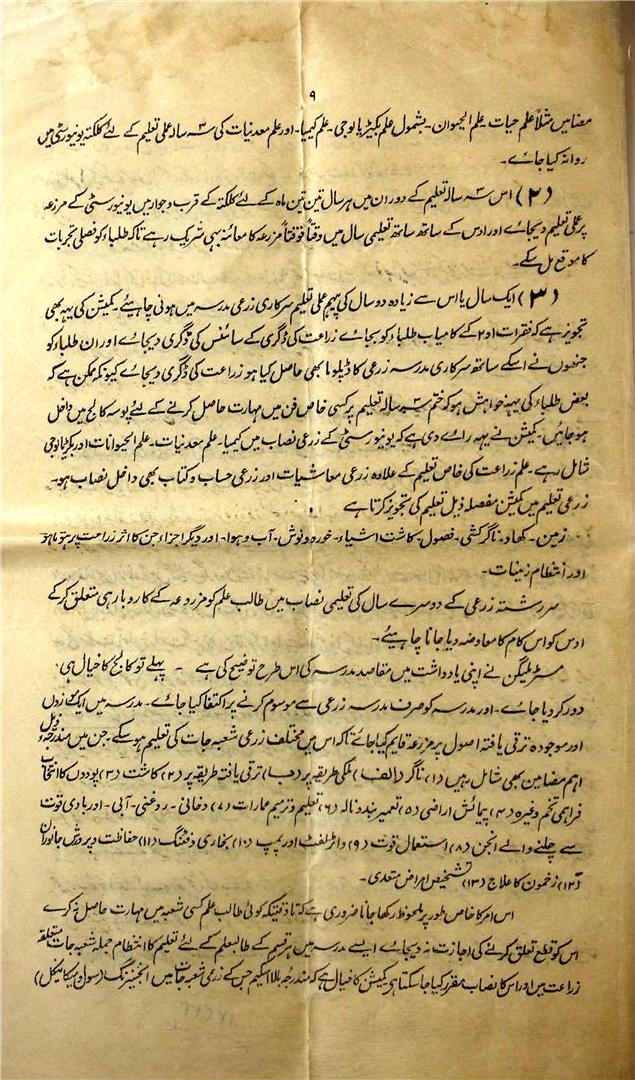 ۹
مضامین مثلاً علم حیات - علم الحیوان - بشمول علم بکٹیریالوجی - علم کیمیا - اور علم معدنیات کی ۳ سہ سالہ عملی تعلیم کے لئے کلکتہ یونیورسٹی میں
روانہ کیا جاے -
(۲) اس ۳ سہ سالہ تعلیم کے دوران میں ہر سال تین تین ماہ کے لئے کلکتہ کے قرب و جوار میں یونیورسٹی کے مزرعہ
پر عملی تعلیم دیجاے اور اوس کے ساتھ ساتھ تعلیمی سال میں وقتاً فوقتاً مزرعہ کا معائنہ بھی شریک رہے تاکہ طلباء کو فصلی تجربات
کا موقع مل سکے -
(۳) ایک سال یا اس سے زیادہ دو سال کی پیہم عملی تعلیم سرکاری زرعی مدرسہ میں ہونی چاہیئے - کمیشن کی یہہ بھی
تجویز ہے کہ فقرات ا و ۲ کے کامیاب طلباء کو بجاے زراعت کی ڈگری کے سائنس کی ڈگری دیجاے اور ان طلباء کو
جنھوں نے اسکے ساتھ سرکاری مدرسہ زرعی کا ڈپلوما بھی حاصل کیا ہو زراعت کی ڈگری دیجاے کیونکہ ممکن ہے کہ
بعض طلباء کی یہہ خواہش ہو کہ ختم سہ سالہ تعلیم پر کسی خاص فن میں مہارت حاصل کرنے کے لئے پوسہ کالج میں داخل
ہو جائیں - کمیشن نے یہہ راے دی ہے کہ یونیورسٹی کے زرعی نصاب میں کیمیا - علم معدنیات - علم الحیوانات اور بکٹریالوجی
شامل رہے - علم زراعت کی خاص تعلیم کے علاوہ زرعی معاشیات اور زرعی حساب و کتاب بھی داخل نصاب ہو -
زرعی تعلیم میں کمیشن مفصلہ ذیل تعلیم کی تجویز کرتا ہے
زمین - کھاد - ناگر کشی - فصول - کاشت اشیاء - خورد و نوش - آب و ہوا - اور دیگر اجزاء جن کا اثر زراعت پر ہوتا ہو
اور انتظام زینات -
سررشتہ زرعی کے دوسرے سال کی تعلیمی نصاب میں طالب علم کو مزروعہ کے کاروبار ہی متعلق کر کے
اوس کو اس کام کا معاوضہ دیا جانا چاہیئے -
مسٹر ملیگن نے اپنی یادداشت میں مقاصد مدرسہ کی اس طرح توضیح کی ہے - پہلے تو کالج کا خیال ہی
دور کر دیا جاے - اور مدرسہ کو صرف مدرسہ زرعی سے موسوم کرنے پر اکتفا کیا جاے - مدرسہ میں ایک موزوں
اور موجودہ ترقی یافتہ اصول پر مزرعہ قایم کیا جائے تاکہ اس میں مختلف زرعی شعبہ جات کی تعلیم ہو سکے - جن میں مندرجہ ذیل
اہم مضامین بھی شامل رہیں (۱) ناگر (الف) ملکی طریقہ پر (ب) ترقی یافتہ طریقہ پر (۲) کاشت (۳) پودوں کا انتخاب
فراہمی تخم وغیرہ (۴) پیمائش اراضی (۵) تعمیر بند و نالہ (۶) تعلیم و ترمیم عمارات (۷) دخانی - روغنی - آبی - اور بادی قوت
سے چلنے والے انجن (۸) استعمال قوت (۹) واٹر لفٹ اور پمپ (۱۰) بخاری و فٹنگ (۱۱) حفاظت و پرورش جانوران
(۱۲) زخموں کا علاج (۱۳) تشخیص امراض متعدی -
اس امر کا خاص طور پر ملحوظ رکھا جانا ضروری ہے کہ تا وقتیکہ کوئی طالب علم کسی شعبہ میں مہارت حاصل نہ کرے
اس کو قطع تعلق کرنے کی اجازت نہ دیجاے ایسے مدرسہ میں ہر قسم کے طالبعلم کے لئے تعلیم کا انتظام جملہ شعبہ جات متعلقہ
زراعت میں اور اس کا نصاب مقرر کیا جا سکتا ہی کمیشن کا خیال ہے کہ مندرجہ بالا اسکیم جس کے زرعی شعبہ جات میں انجنیرنگ (سول و میکانیکل)